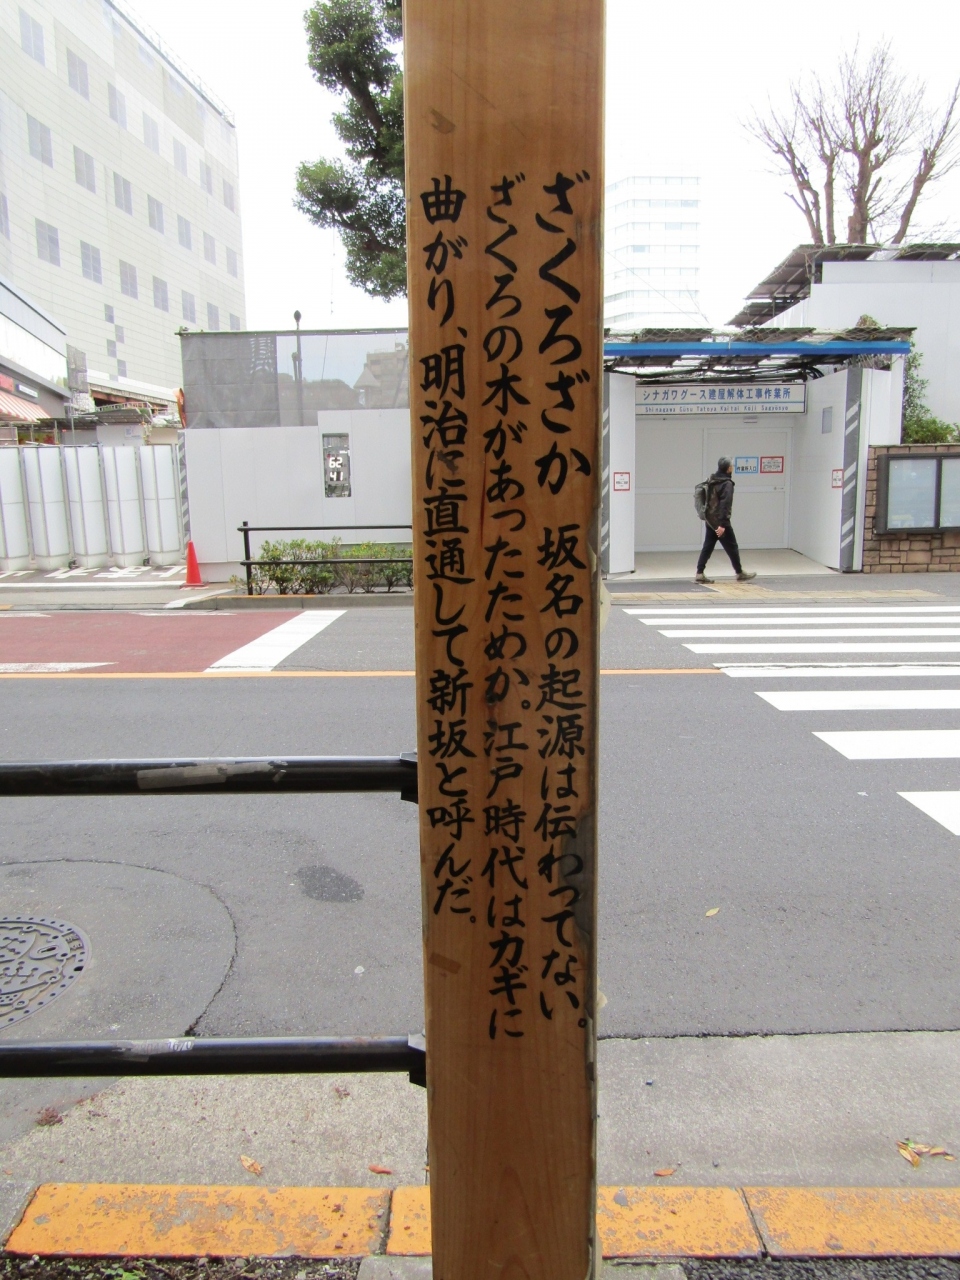 ざくろざか　坂名の起源は伝わってない。
ざくろの木があったためか。江戸時代はカギに
曲がり、明治に直通して新坂と呼んだ。
シナガワグース建屋解体工事作業所
62
41